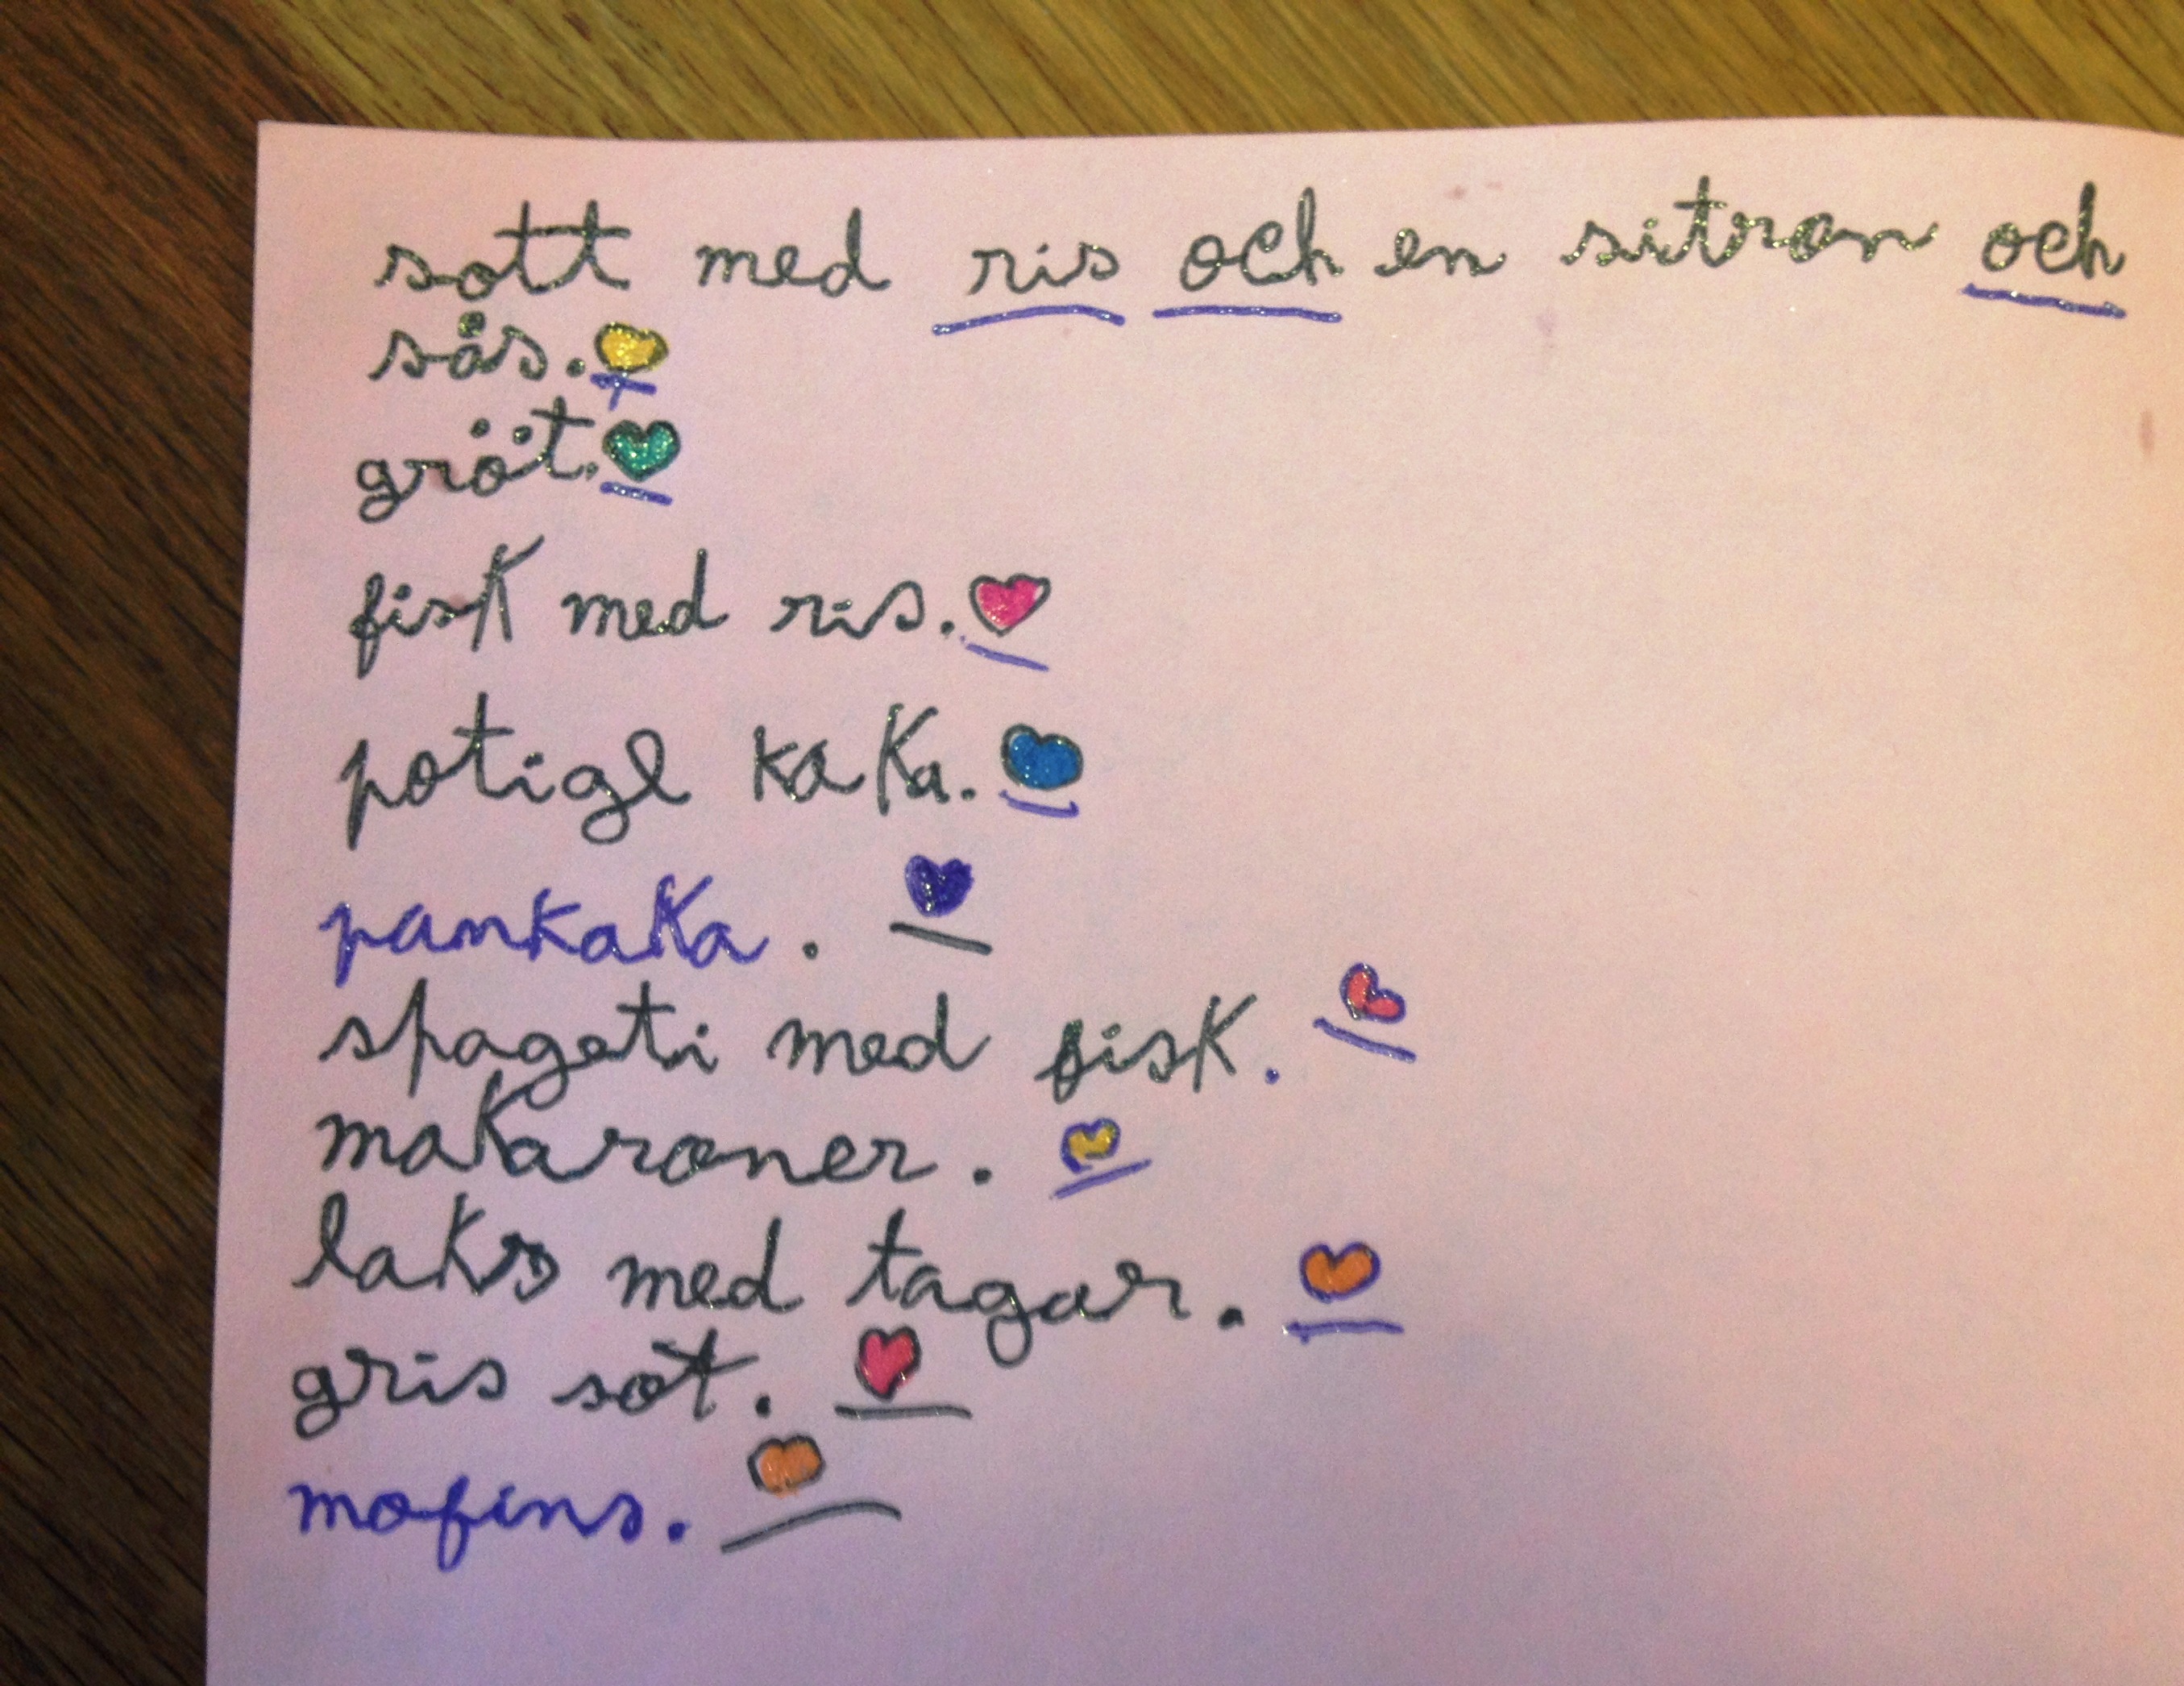 sott med ris och en sitron och
sås.
gröt.
fisk med ris.
potigl kaka.
pankaka.
spageti med fisk.
makaroner.
laks med tagar.
gris sot.
mofins.